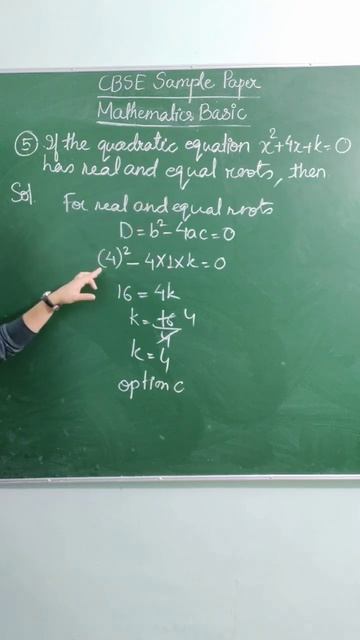 CBSE Sample Paper
Mathematics Basic
⑤ If the quadratic equation x²+4x+k=0
has real and equal roots, then
Sol. For real and equal roots
D=b²-4ac=0
(4)²-4×1×k=0
16=4k
k=16/4 4
k=4
option c